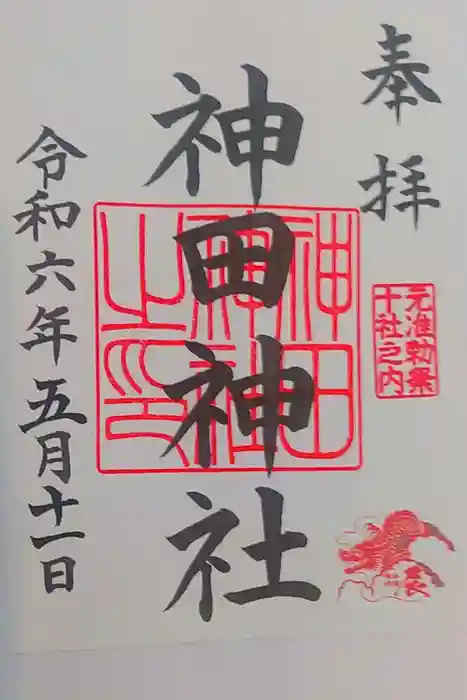 奉拝
元准勅祭
十社之内
辰
神田神社
神田
神社
之印
令和六年五月十一日